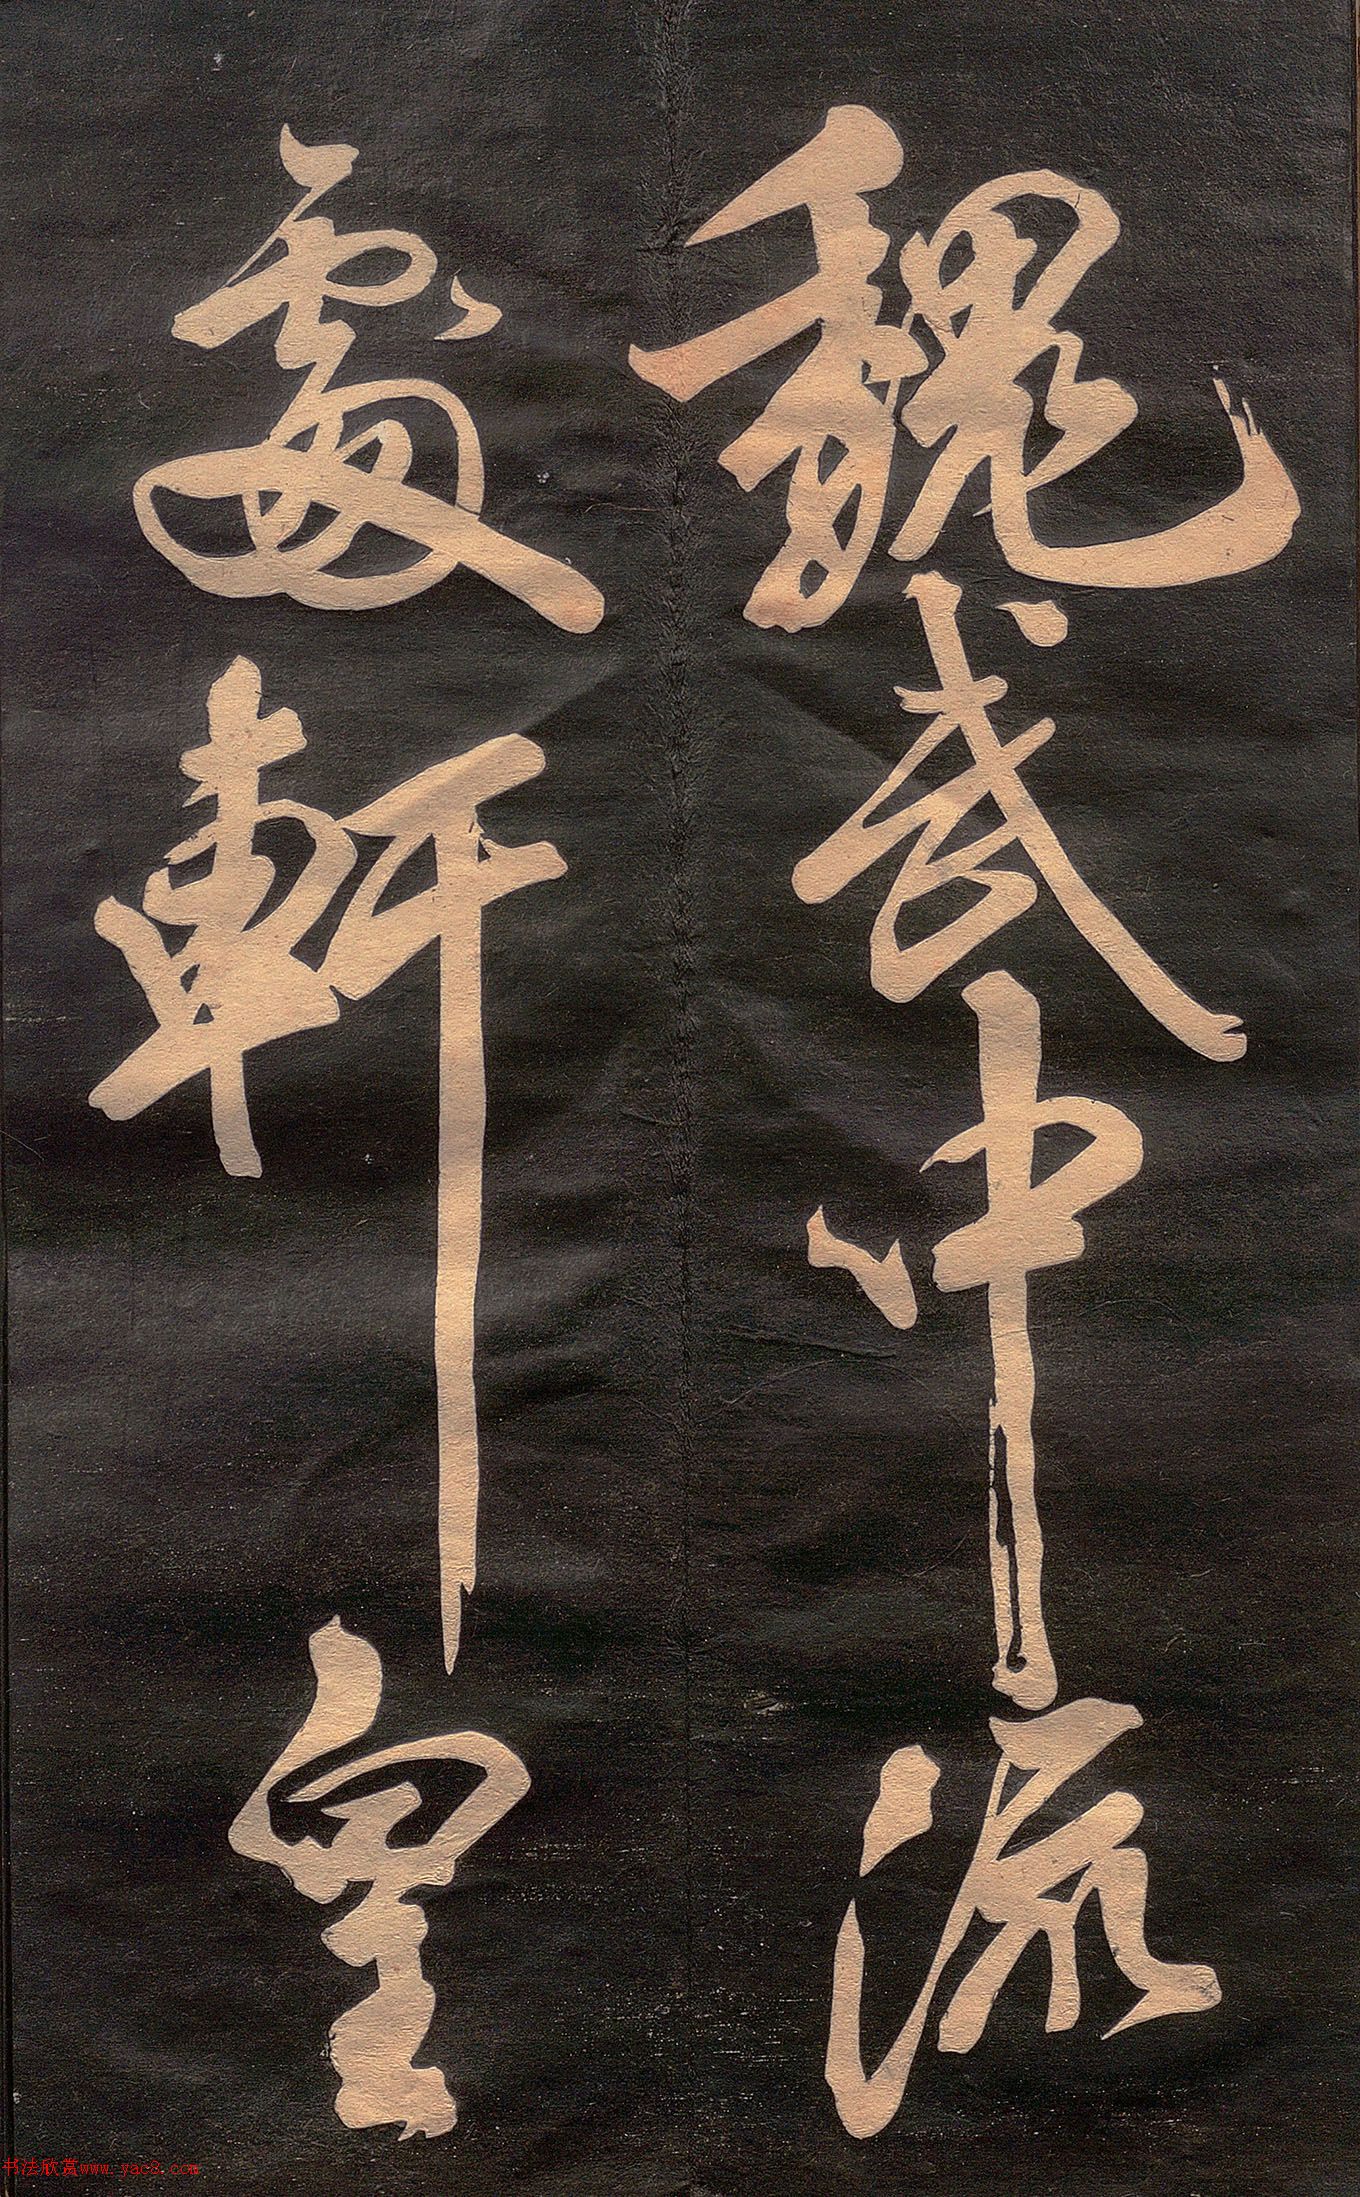 魏武中流
處軒皇
书法欣赏www.yac8.com